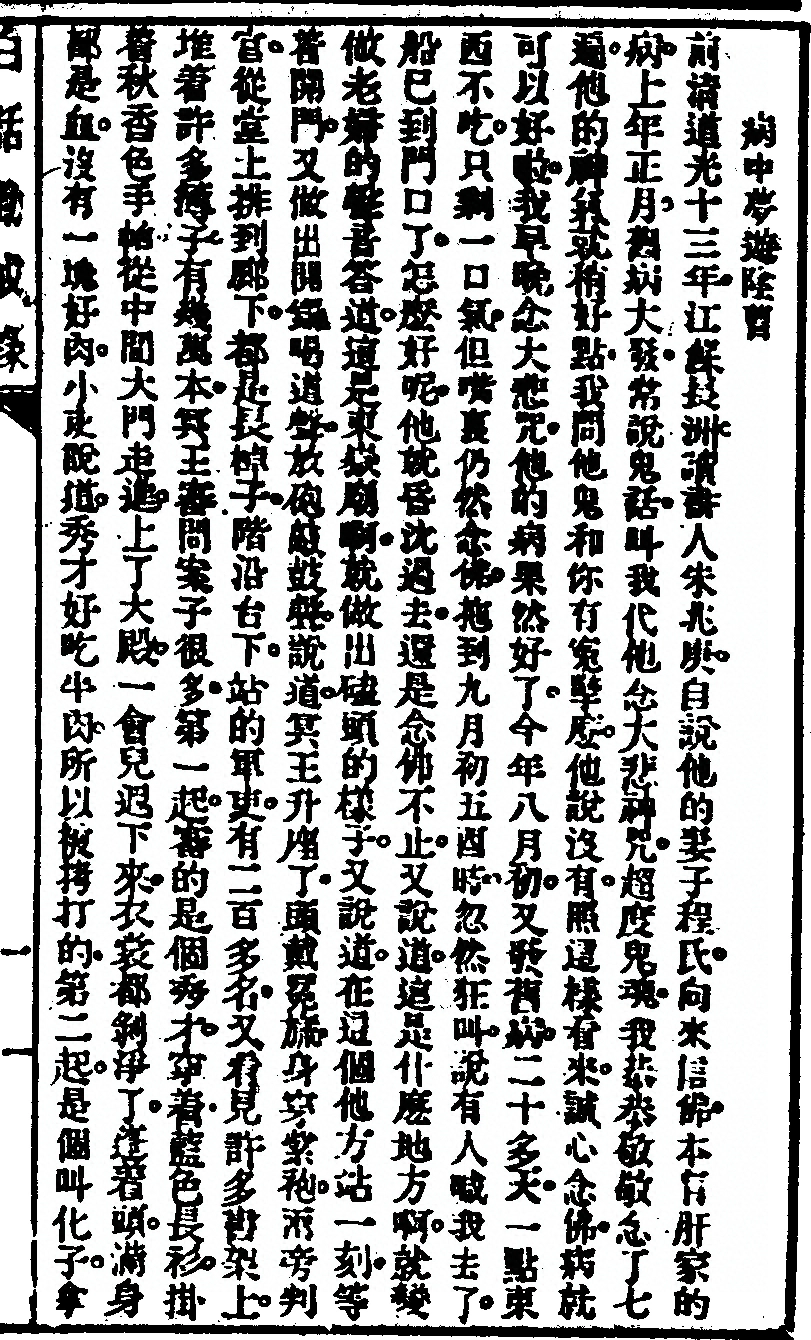 病中夢遊陰曹
前清道光十三年江蘇長洲讀書人朱兆庚自說他的妻子程氏向來信佛本有肝家的
病上年正月舊病大發常說鬼話叫我代他念大悲神咒超度鬼魂我恭恭敬敬念了七
遍他的神氣就稍好點我問他鬼和你有寃孽麽他說沒有照這樣看來誠心念佛病就
可以好啦我早晚念大悲咒他的病果然好了今年八月初又發舊病二十多天一點東
西不吃只剩一口氣但嘴裏仍然念佛拖到九月初五酉時忽然狂叫說有人喊我去了
船已到門口了怎麽好呢他就昏沈過去還是念佛不止又說道這是什麽地方啊就變
做老婦的聲音答道這是東嶽廟啊就做出磕頭的樣子又說道在這個他方站一刻等
著開門又做出開鑼喝道聲放砲鼓鼓聲說道冥王升座了頭戴冕旒身穿紫袍兩旁判
官從堂上排到廊下都是長棹子階沿台下站的軍吏有二百多名又看見許多書架上
堆着許多簿子有幾萬本冥王審問案子很多第一起審的是個秀才穿着藍色長衫掛
着秋香色手帕從中間大門走進上了大殿一會兒退下來衣裳都剝淨了蓬着頭滿身
都是血沒有一塊好肉小吏說道秀才好吃牛肉所以被拷打的第二起是個叫化子拿
白話
錄
一
一